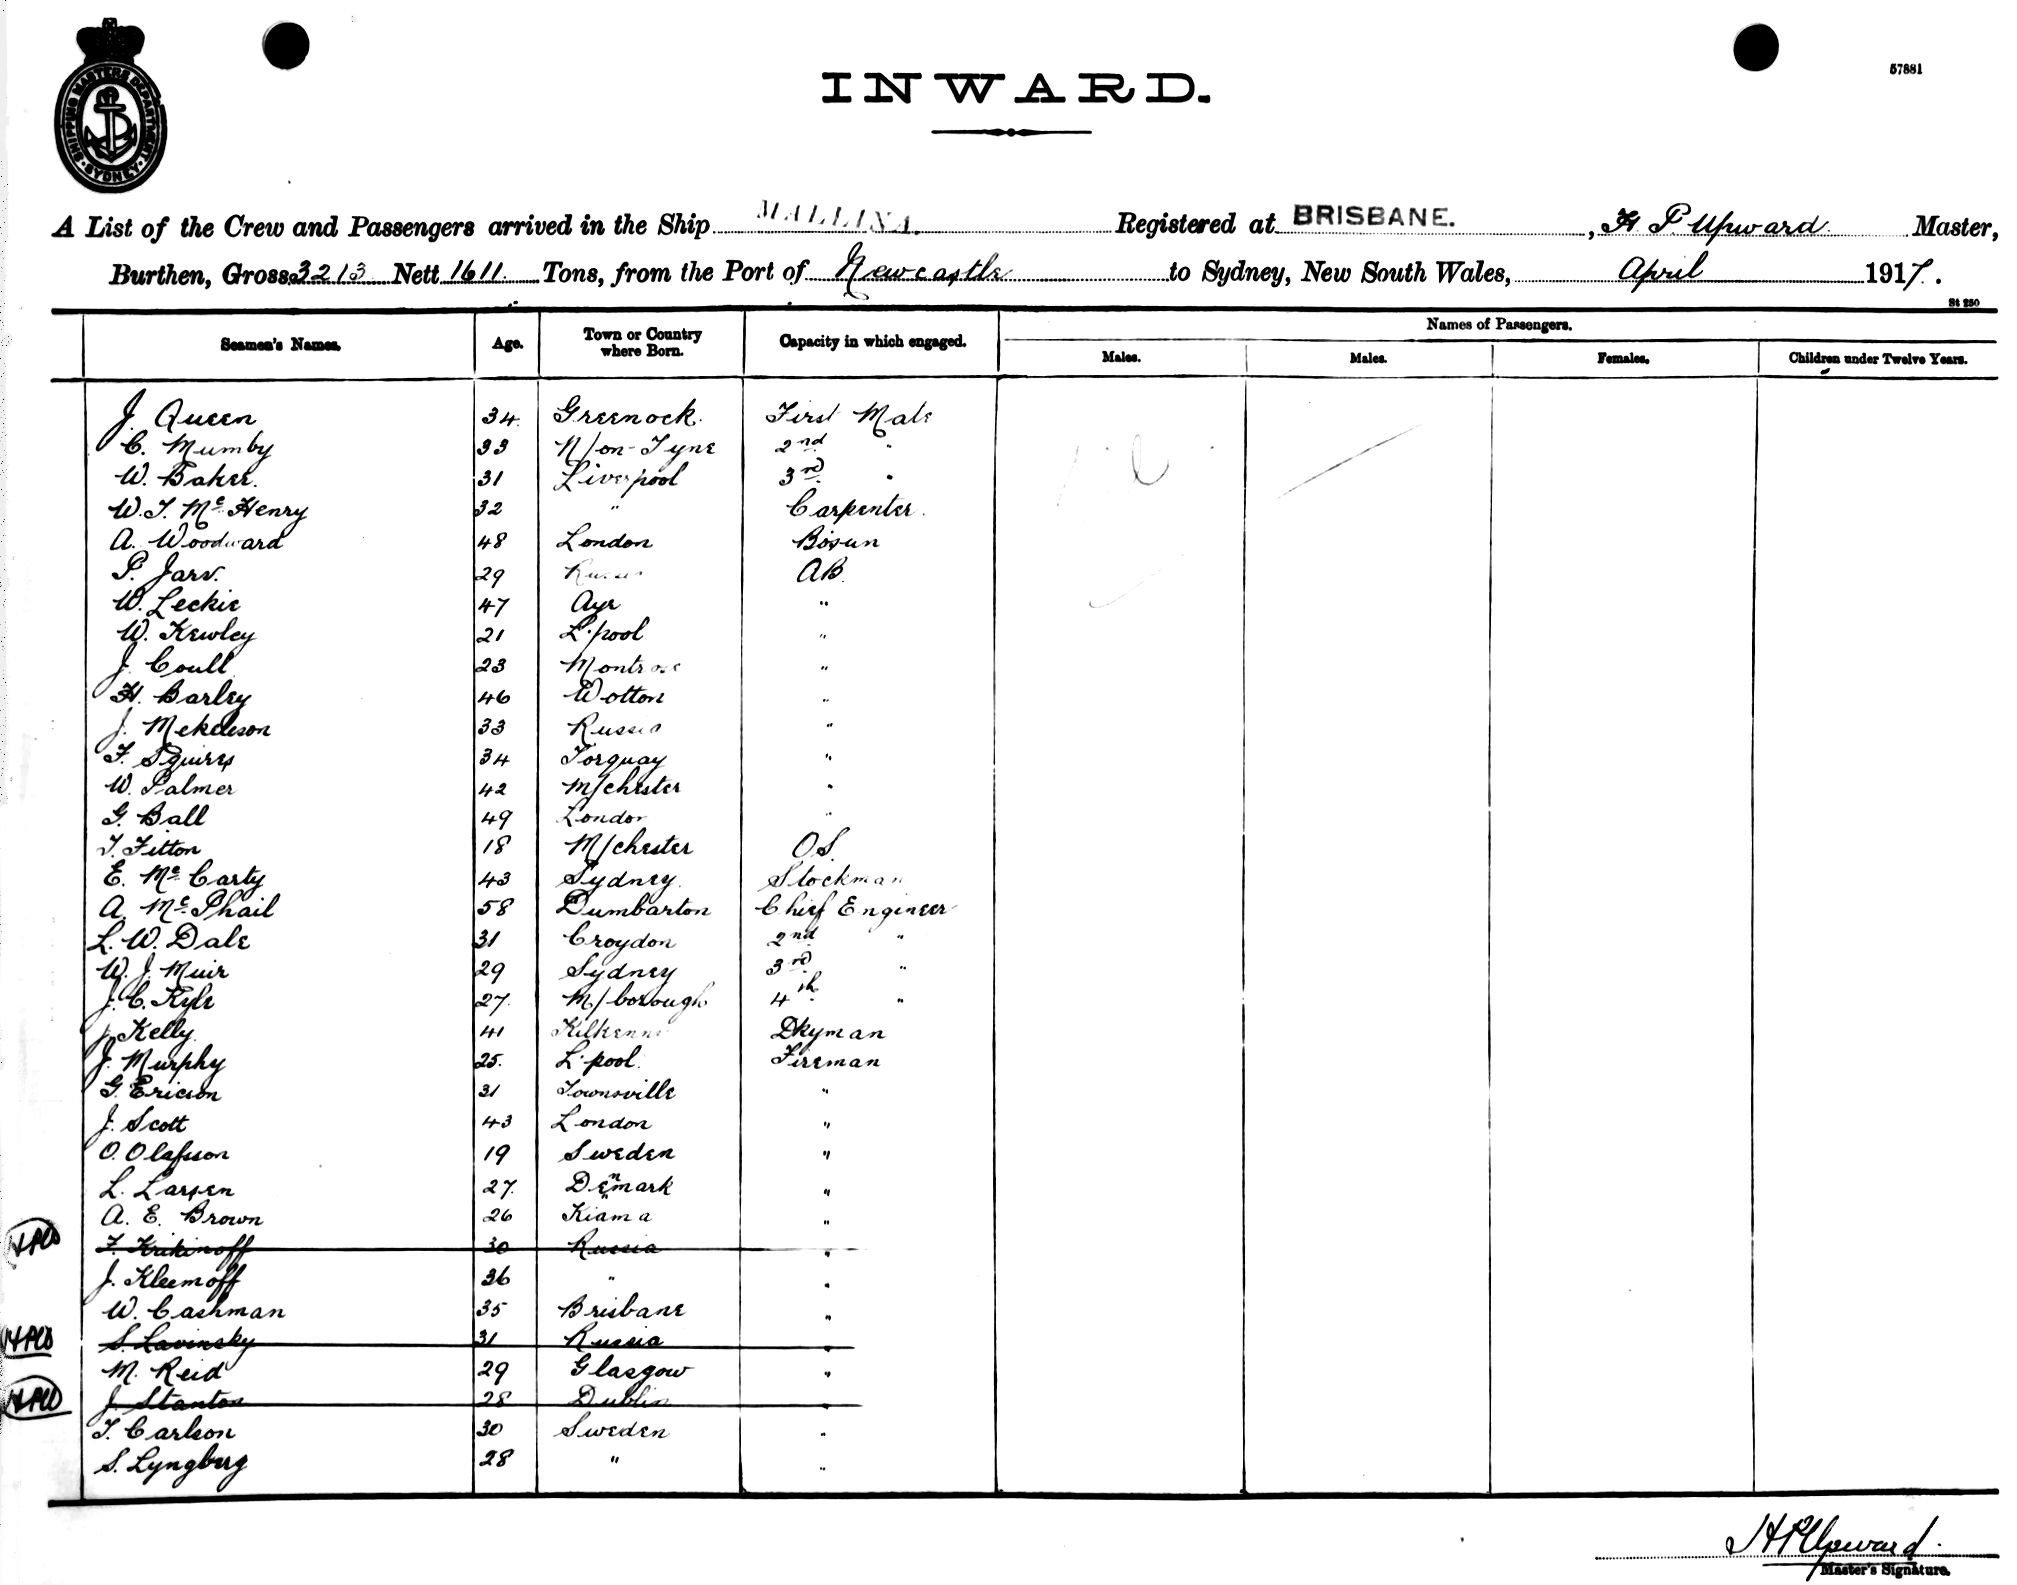 SHIPPING MASTERS DEPARTMENT
SYDNEY
57881
INWARD.
A List of the Crew and Passengers arrived in the Ship MALLINA. Registered at BRISBANE. , H. P. Upward Master,
Burthen, Gross 3213 Nett 1611. Tons, from the Port of Newcastle to Sydney, New South Wales, April 1917.
St 250
Seamen's Names. Age. Town or Country where Born. Capacity in which engaged. Names of Passengers.
Males. Males. Females. Children under Twelve Years.
J. Queen 34 Greenock. First Mate
C. Mumby 33 N/on-Tyne 2nd "
W. Baker. 31 Liverpool 3rd "
W. J. McHenry 32 " Carpenter.
A. Woodward 48 London Bosun
P. Jarv. 29 Russia AB.
W. Leckie 47 Ayr "
W. Kewley 21 L'pool "
J. Coull 23 Montrose "
H. Barley 46 Wotton "
J. 33 Russia "
F. Squires 34 Torquay "
W. Palmer 42 M/chester "
G. Ball 49 London "
T. Fitton 18 M/chester O.S.
E. McCarty 43 Sydney. Stockman
A. McPhail 58 Dumbarton Chief Engineer
L. W. Dale 31 Croydon 2nd "
W. J. Muir 29 Sydney 3rd "
J. C. Kyle 27. M/borough 4th "
J. Kelly. 41 Kilkenny Dkyman
J. Murphy 25. L'pool. Fireman
G. Ericson 31 Townsville "
J. Scott 43 London "
O. Olafsson 19 Sweden "
L. Larsen 27. Denmark "
A. E. Brown 26 Kiama "
F. Krikinoff 30 Russia "
J. Kleemoff 36 " "
W. Cashman 35 Brisbane "
S. Lavinsky 31 Russia "
M. Reid 29 Glasgow "
J. Stanton 28 Dublin "
T. Carlson 30 Sweden "
S. Lyngberg 28 " "
H P Upward.
Master's Signature.